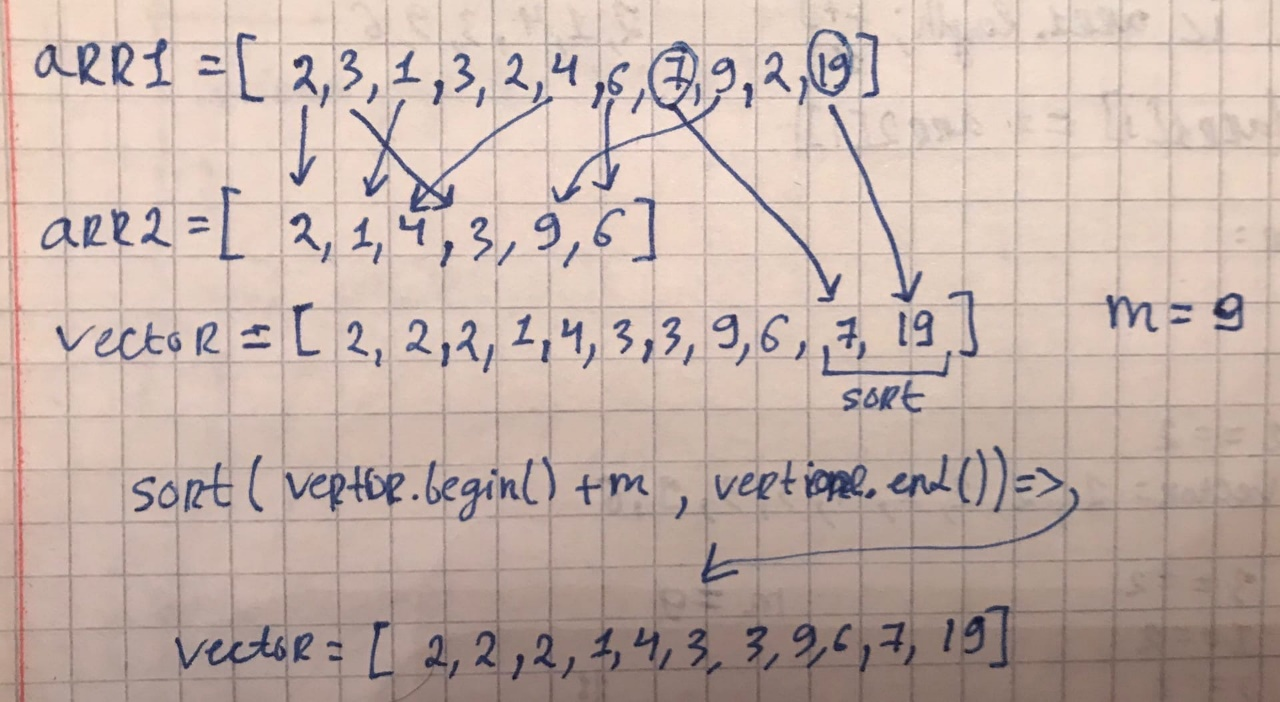 aRR1 = [ 2, 3, 1, 3, 2, 4, 6, 7, 9, 2, 19 ]
aRR2 = [ 2, 1, 4, 3, 9, 6 ]
vectoR = [ 2, 2, 2, 1, 4, 3, 3, 9, 6, 7, 19 ]
m = 9
soRt
soRt ( veRtoR.begin() + m , .end()) =>
vectoR = [ 2, 2, 2, 1, 4, 3, 3, 9, 6, 7, 19 ]